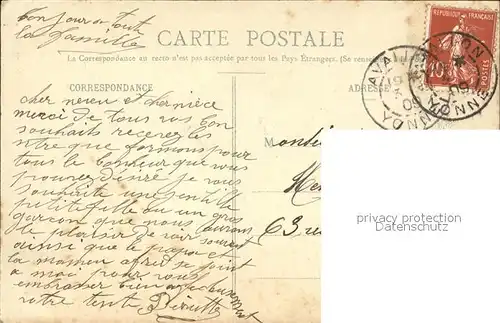 bonjour a tout
la famille
CARTE POSTALE
La Correspondance au recto n'est pas acceptée par tous les Pays Étrangers. (Se rense
CORRESPONDANCE
ADRESSE
REPUBLIQUE FRANÇAISE
10
POSTES
AVALLON
YONNE
09
cher neveu et chernièce
merci de tous vos bon
souhaits recevez les
notre que formons pour
tous le bonheur que vous
pouvez désiré je vous
souhaite une gentille
petite fille ou un gros
garçon que nous aurons
le plaisir de voir souvent
ainsi que le papa et
la maman afred se joint
a moi pour vous
embrasser bien affectueusement
votre tente
Monsieur
63 rue
privacy protection
oldthing.de